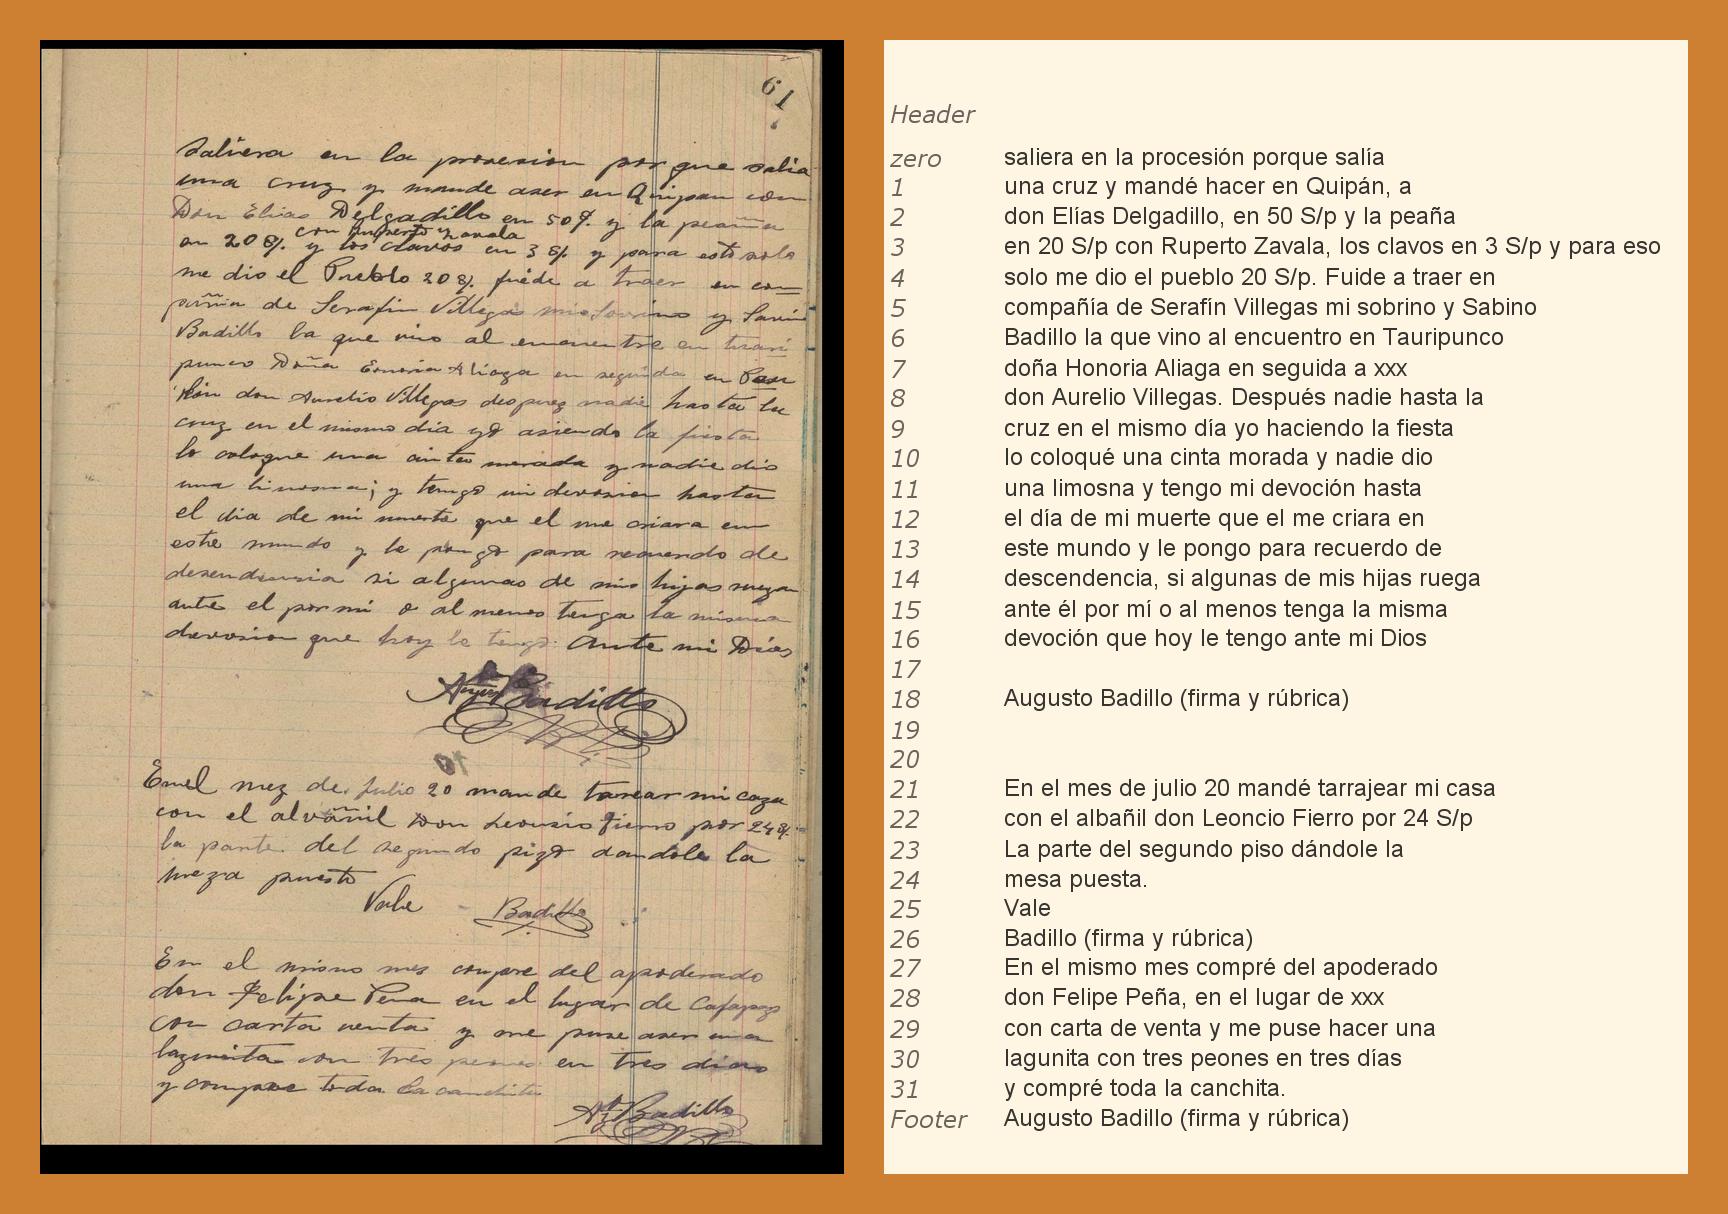 61
saliera en la prosesion por que salia
una cruz y mande aser en Quipan con
Don Elias Delgadillo en 50 $. y la peaña
con Ruperto Zavala
en 20 $. y los clavos en 3 $. y para esto solo
me dio el Pueblo 20 $. fuide a traer en com
pañia de Serafin Villegas mi Sovrino y Savino
Badillo la que vino al encuentro en tauri
punco Doña Eonoria Aliaga en seguida en
don Aurelio Villegas despues nadie hasta la
cruz en el mismo dia yo asiendo la fiesta
lo coloque una cinta morada y nadie dio
una limosna; y tengo mi devosion hasta
el dia de mi muerte que el me criara en
este mundo y le pongo para recuerdo de
desendensia si algunas de mis hijas ruega
ante el por mi o al menos tenga la misma
devosion que hoy le tengo Ante mi Dios
Badillo
En el mez de Julio 20 mande tarear mi caza
con el alvañil Don Leonsio fierro por 24 $.
la parte del segundo pizo dandole la
meza puesto
Vale Badillo
En el mismo mes compre del apoderado
don Felipe Peña en el lugar de
con carta venta y me puse aser una
lagunita con tres peones en tres dias
y compre toda la canchita
Badillo
Header
zero saliera en la procesión porque salía
1 una cruz y mandé hacer en Quipán, a
2 don Elías Delgadillo, en 50 S/p y la peaña
3 en 20 S/p con Ruperto Zavala, los clavos en 3 S/p y para eso
4 solo me dio el pueblo 20 S/p. Fuide a traer en
5 compañía de Serafín Villegas mi sobrino y Sabino
6 Badillo la que vino al encuentro en Tauripunco
7 doña Honoria Aliaga en seguida a xxx
8 don Aurelio Villegas. Después nadie hasta la
9 cruz en el mismo día yo haciendo la fiesta
10 lo coloqué una cinta morada y nadie dio
11 una limosna y tengo mi devoción hasta
12 el día de mi muerte que el me criara en
13 este mundo y le pongo para recuerdo de
14 descendencia, si algunas de mis hijas ruega
15 ante él por mí o al menos tenga la misma
16 devoción que hoy le tengo ante mi Dios
17
18 Augusto Badillo (firma y rúbrica)
19
20
21 En el mes de julio 20 mandé tarrajear mi casa
22 con el albañil don Leoncio Fierro por 24 S/p
23 La parte del segundo piso dándole la
24 mesa puesta.
25 Vale
26 Badillo (firma y rúbrica)
27 En el mismo mes compré del apoderado
28 don Felipe Peña, en el lugar de xxx
29 con carta de venta y me puse hacer una
30 lagunita con tres peones en tres días
31 y compré toda la canchita.
Footer Augusto Badillo (firma y rúbrica)